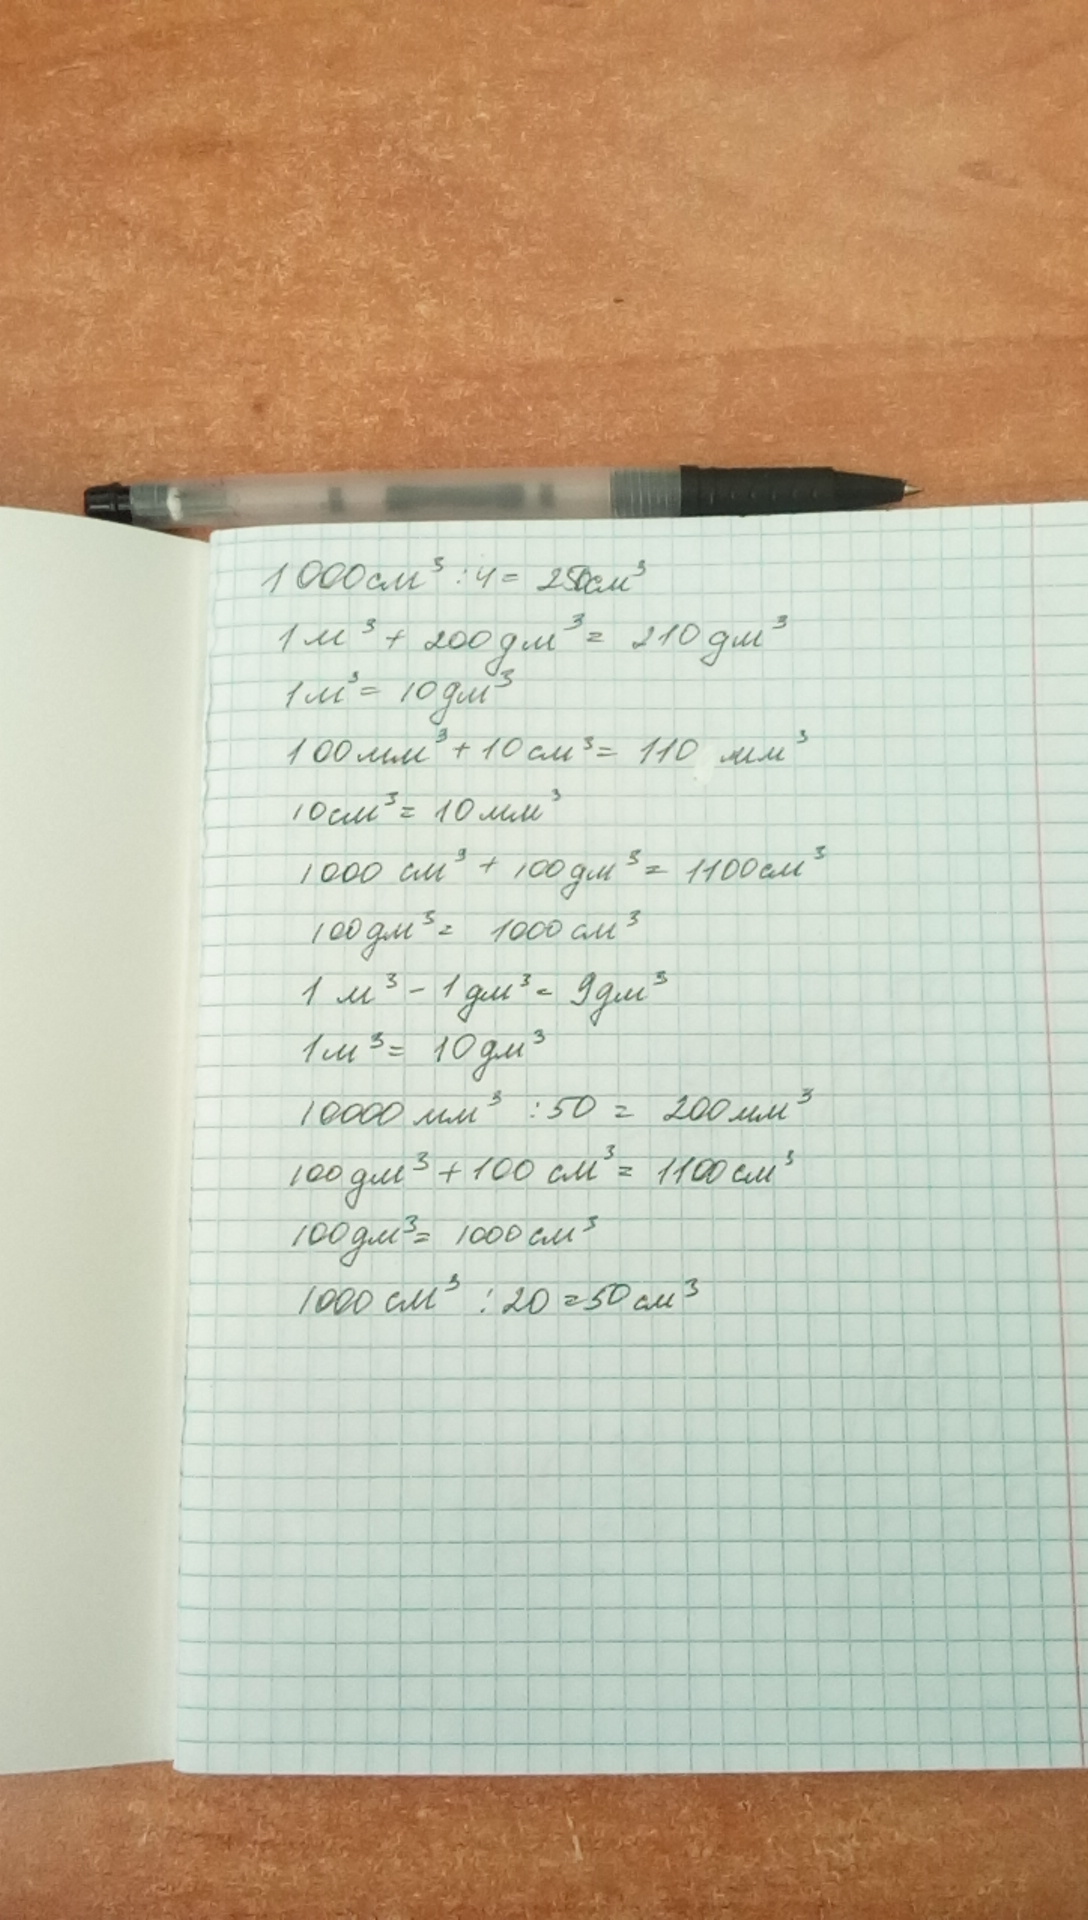 1000см³ : 4 = 250см³
1м³ + 200дм³ = 210дм³
1м³ = 10дм³
100мм³ + 10см³ = 110 мм³
10см³ = 10мм³
1000 см³ + 100дм³ = 1100см³
100дм³ = 1000см³
1 м³ - 1дм³ = 9дм³
1м³ = 10дм³
10000 мм³ : 50 = 200мм³
100дм³ + 100 см³ = 1100см³
100дм³ = 1000см³
1000 см³ : 20 = 50см³